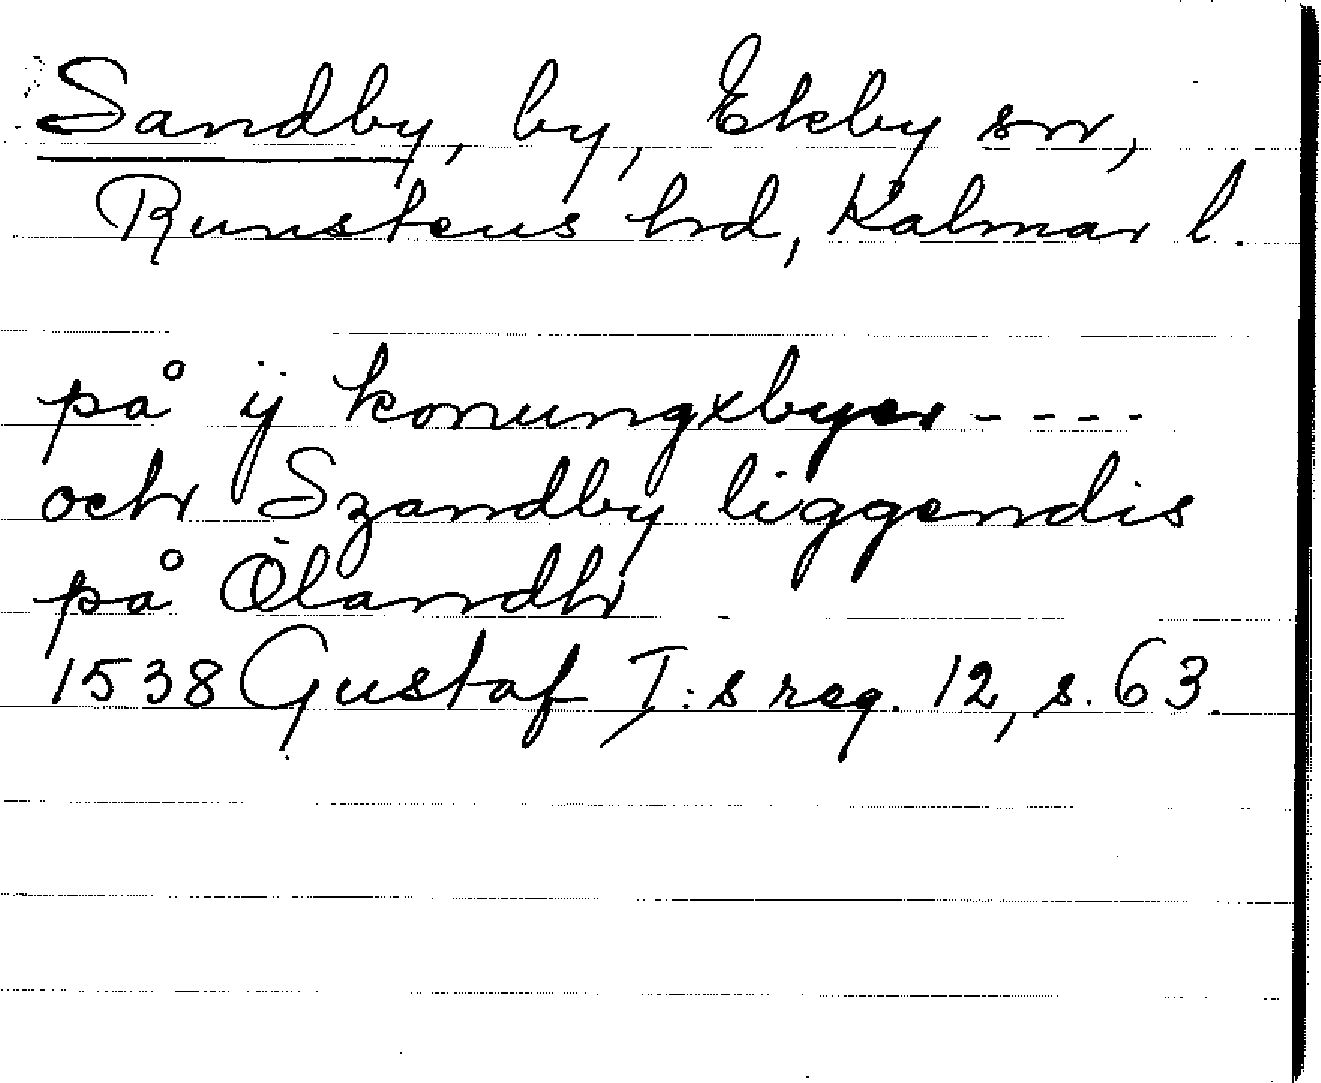 Sandby, by, Ekeby sn,
Runstens hd, Kalmar l.
på ij konungxbyer - - - -
och Szandby liggendis
på Ölandh
1538 Gustaf I:s reg. 12, s. 63.